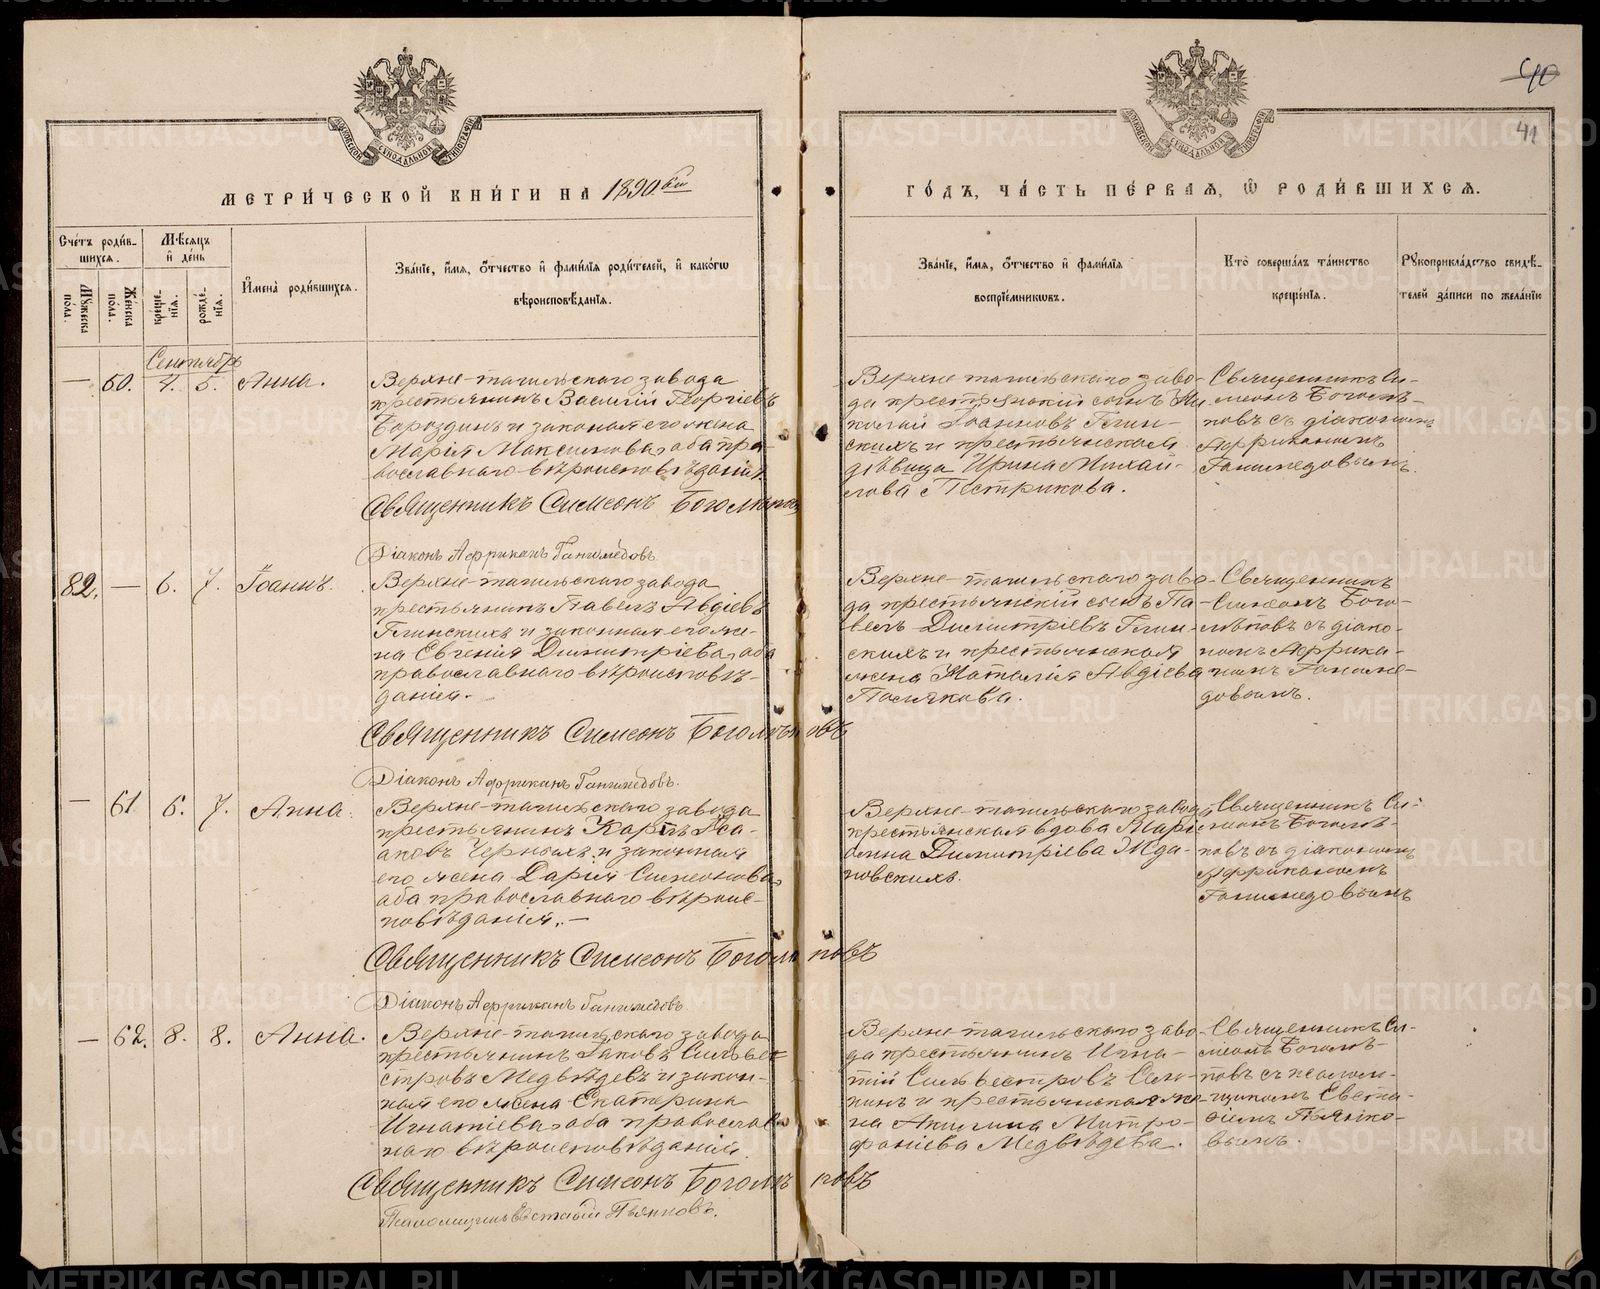 МЕТРИ́ЧЕСКОЙ КНИ́ГИ НА 1890ый
ГО́ДЪ, ЧА́СТЬ ПЕ́РВАЯ, Ѡ РОДИ́ВШИХСЯ.
40
41
Сче́тъ роди́в-
шихся.
Мѣ́сяцъ
и҆ де́нь
Мужеска
пола.
Женска
пола.
креще́-
нїя.
рожде́-
нїя.
И҆мена̀ роди́вшихся.
Зва́нїе, и҆́мя, ѻ҆́тчество и҆ фами́лїя роди́телей, и҆ како́гѡ
вѣроисповѣ́данїя.
Зва́нїе, и҆́мя, ѻ҆́тчество и҆ фами́лїя
воспрїе́мникѡвъ.
Кто̀ соверша́лъ та́инство
креще́нїя.
Рꙋкоприкла́дство свидѣ́-
телей за́писи по жела́нїю
Сентябрь
— 60. 4. 5. Анна.
Верхне-тагильскаго завода
крестьянинъ Василій Георгіевъ
Бороздинъ и законная его жена
Марія Максимова, оба пра-
вославнаго вѣроисповѣданія.
Священникъ Симеонъ Боголѣповъ
Діаконъ Африканъ Ганимедовъ
Верхне-тагильскаго заво-
да крестьянскій сынъ Ни
колай Іоанновъ Глин-
скихъ и крестьянская
дѣвица Ирина Михай-
лова Пестрикова.
Священникъ Си-
меонъ Боголѣ-
повъ съ діакономъ
Африканомъ
Ганимедовымъ.
82. — 6. 7. Іоаннъ.
Верхне-тагильскаго завода
крестьянинъ Павелъ Авдіевъ
Глинскихъ и законная его же-
на Евгенія Димитріева, оба
православнаго вѣроисповѣ-
данія.
Священникъ Симеонъ Боголѣповъ
Діаконъ Африканъ Ганимедовъ.
Верхне-тагильскаго заво-
да крестьянскій сынъ Па
велъ Димитріевъ Глин-
скихъ и крестьянская
жена Наталія Авдіева
Полякова.
Священникъ
Симеонъ Бого-
лѣповъ съ діако-
номъ Африка-
номъ Ганиме-
довымъ.
— 61 6. 7. Анна.
Верхне-тагильскаго завода
крестьянинъ Карпъ Иса-
аковъ Черныхъ и законная
его жена Дарія Симеонова,
оба православнаго вѣроис-
повѣданія.—
Священникъ Симеонъ Боголѣповъ
Діаконъ Африканъ Ганимедовъ
Верхне-тагильскаго завода
крестьянская вдова Марі
амна Димитріева Жда-
новскихъ.
Священникъ Си-
меонъ Боголѣ-
повъ съ діакономъ
Африканомъ
Ганимедовымъ
— 62. 8. 8. Анна.
Верхне-тагильскаго завода
крестьянинъ Іаковъ Сильве
стровъ Медвѣдевъ и закон-
ная его жена Екатерина
Игнатіева, оба православ
наго вѣроисповѣданія.
Священникъ Симеонъ Боголѣповъ
Псаломщикъ Евстафій Пьянковъ.
Верхне-тагильскаго заво-
да крестьянинъ Игна-
тій Сильвестровъ
и крестьянская же-
на Акилина Митро-
фаніева Медвѣдева.
Священникъ Си-
меонъ Боголѣ-
повъ съ псалом-
щикомъ Евста-
фіемъ Пьянко-
вымъ.
METRIKI.GASO-URAL.RU